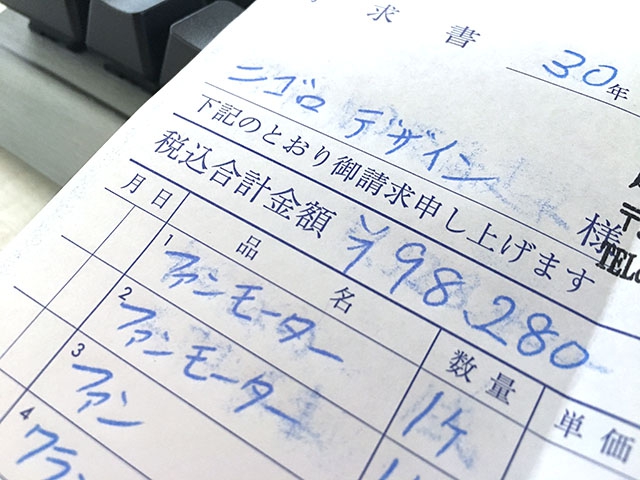 求書
30年
ニゴロ デザイン 様
下記のとおり御請求申し上げます
税込合計金額 ¥98,280
月 日 品名 数量 単価
1 ファンモーター 1ケ
2 ファンモーター
3 ファン
4
TEL